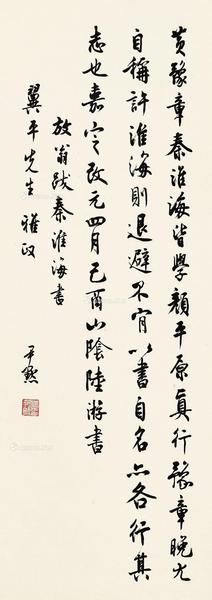 黄豫章秦淮海皆學顔平原真行豫章晚尤
自稱許淮海則退避不肯以書自名亦各行其
志也嘉定改元四月己酉山陰陸游書
放翁跋秦淮海書
翼平先生雅政
尹默